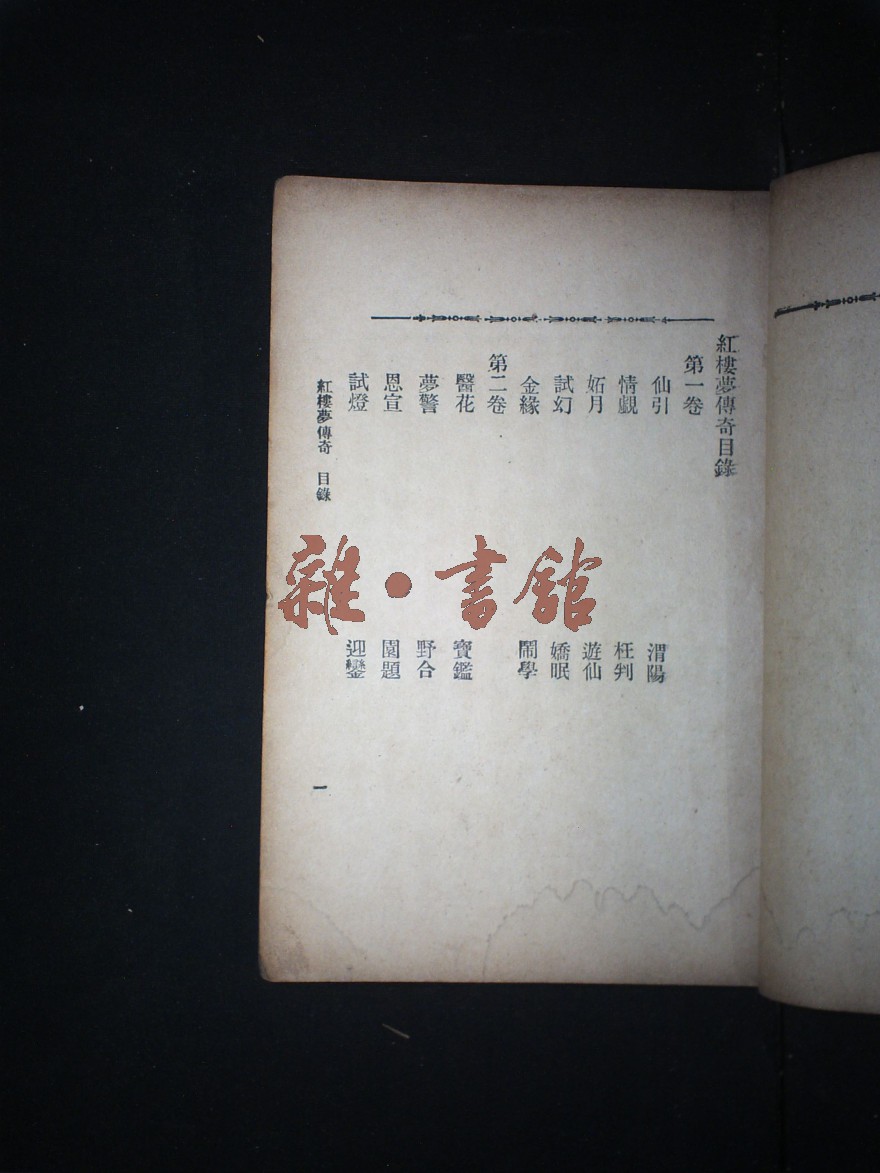 紅樓夢傳奇目錄
第一卷
仙引 渭陽
情覷 枉判
妬月 遊仙
試幻 嬌眠
金緣 鬧學
第二卷
醫花 寶鑑
夢警 野合
恩宣 園題
試燈 迎鑾
紅樓夢傳奇 目錄 一
雜·書館